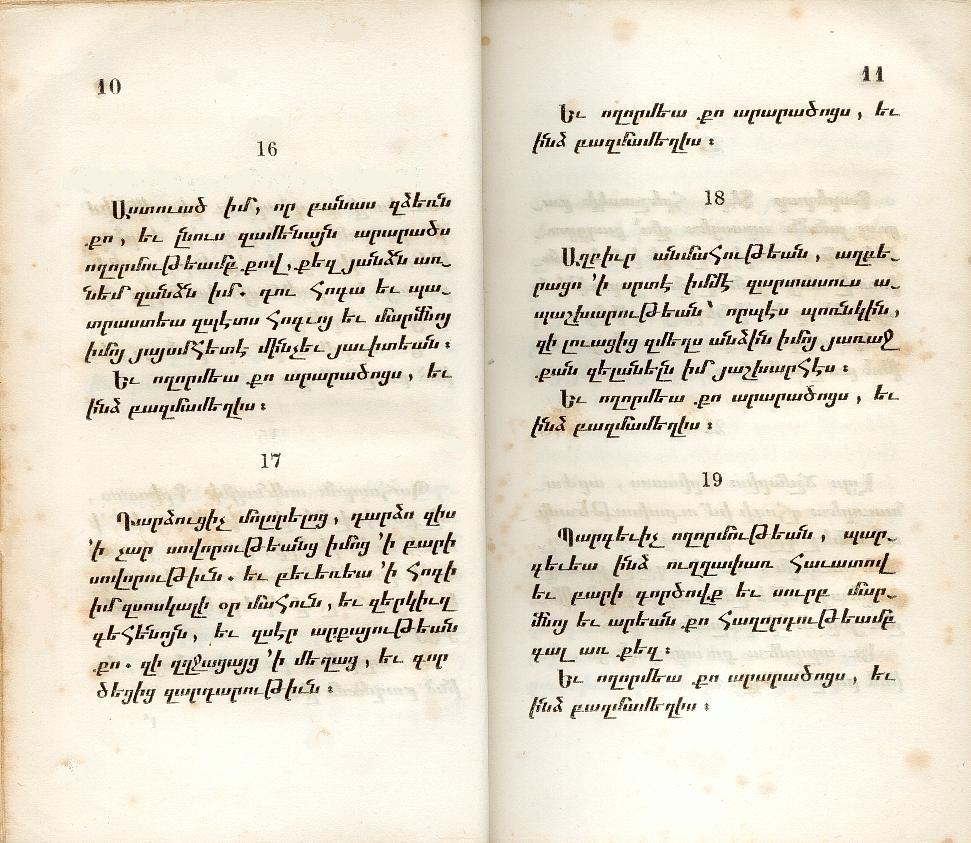 10
16
Աստուած իմ, որ բանաս զձեռն
քո, եւ լնուս զամենայն արարածս
ողորմութեամբ քով, քեզ յանձն առ֊
նեմ զանձն իմ. դու հոգա եւ պա֊
տրաստեա զպէտս հոգւոյ եւ մարմնոյ
իմոյ յայսմհետէ մինչեւ յաւիտեան։
Եւ ողորմեա քո արարածոցս, եւ
ինձ բազմամեղիս։
17
Դարձուցիչ մոլորելոց, դարձո զիս
՚ի չար սովորութեանց իմոց ՚ի բարի
սովորութիւն. եւ բեւեռեա ՚ի հոգի
իմ զսոսկալի օր մահուն, եւ զերկիւղ
գեհենոյն, եւ զսէր արքայութեան
քո. զի զղջացայց ՚ի մեղաց, եւ գոր
ծեցից զարդարութիւն։
11
Եւ ողորմեա քո արարածոցս, եւ
ինձ բազմամեղիս։
18
Աղբիւր անմահութեան, աղբե֊
րացո ՚ի սրտէ իմմէ զարտասուս ա֊
պաշխարութեան՝ որպէս պոռնկին,
զի լուացից զմեղս անձին իմոյ յառաջ
քան զելանելն իմ յաշխարհէս։
Եւ ողորմեա քո արարածոցս, եւ
ինձ բազմամեղիս։
19
Պարգեւիչ ողորմութեան, պար֊
գեւեա ինձ ուղղափառ հաւատով
եւ բարի գործովք եւ սուրբ մար֊
մնոյ եւ արեան քո հաղորդութեամբ
գալ առ քեզ։
Եւ ողորմեա քո արարածոցս, եւ
ինձ բազմամեղիս։